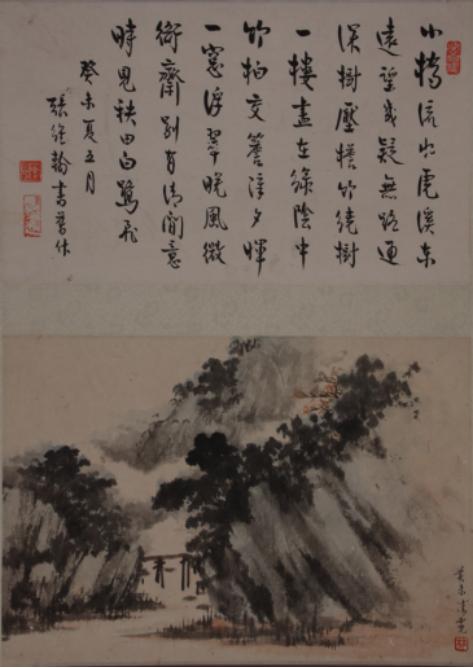 小橋流出虎溪東
遠望或疑無路通
深樹壓檐竹繞樹
一樓盡在綠陰中
竹柏交簷夕暉
一窓浮翠晚風微
衙齋別有清閒意
時見秧田白鷺飛
癸未夏五月
張維翰書舊作